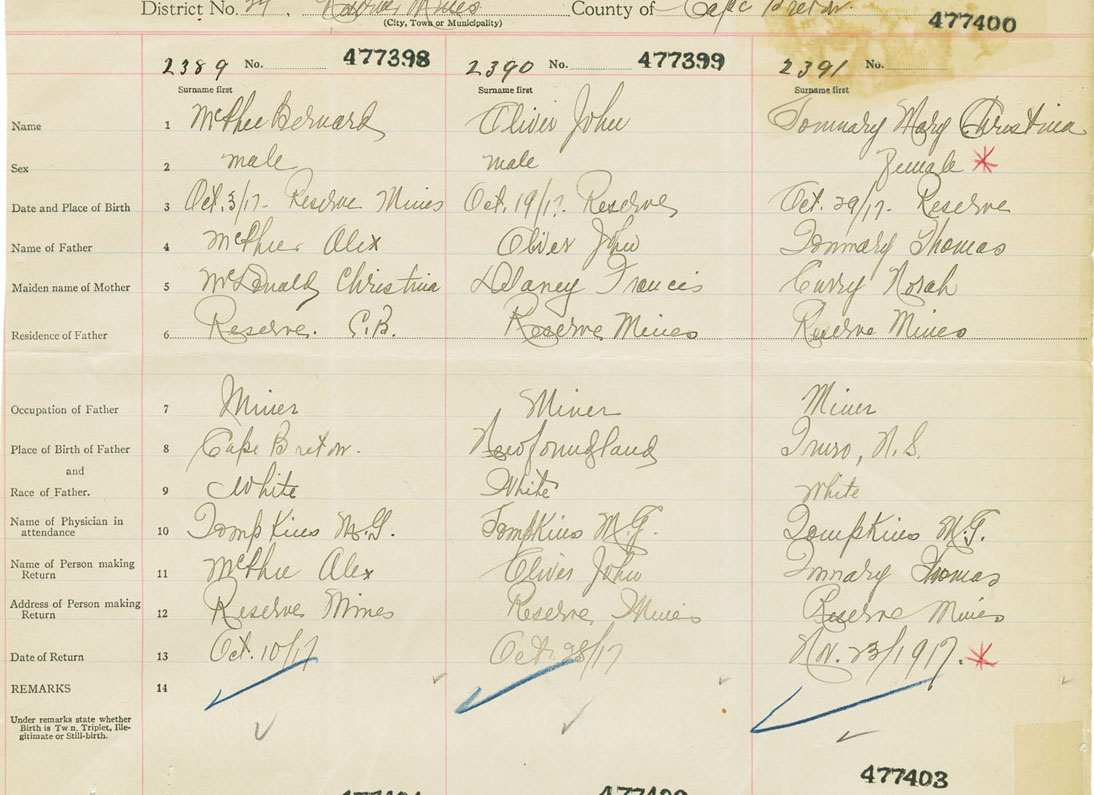 District No. 24. Reserve Mines County of Cape Breton.
(City, Town or Municipality)
477400
2389 No. 477398 2390 No. 477399 2391 No.
Surname first Surname first Surname first
Name 1 McPhee Bernard Oliver John Mary Christina
Sex 2 male male Female *
Date and Place of Birth 3 Oct. 3/17. Reserve Mines Oct. 19/17. Reserve Oct. 29/17. Reserve
Name of Father 4 McPhee Alex Oliver John Thomas
Maiden name of Mother 5 McDonald Christina Delaney Francis Curry Norah
Residence of Father 6 Reserve. C.B. Reserve Mines Reserve Mines
Occupation of Father 7 Miner Miner Miner
Place of Birth of Father 8 Cape Breton. Newfoundland Truro, N.S.
and
Race of Father. 9 White White White
Name of Physician in attendance 10 Tompkins M.G. Tompkins M.G. Tompkins M.G.
Name of Person making Return 11 McPhee Alex Oliver John Thomas
Address of Person making Return 12 Reserve Mines Reserve Mines Reserve Mines
Date of Return 13 Oct. 10/17 Oct. 28/17 Nov. 23/1917. *
REMARKS 14
Under remarks state whether
Birth is Twn, Triplet, Ille-
gitimate or Still-birth.
477403